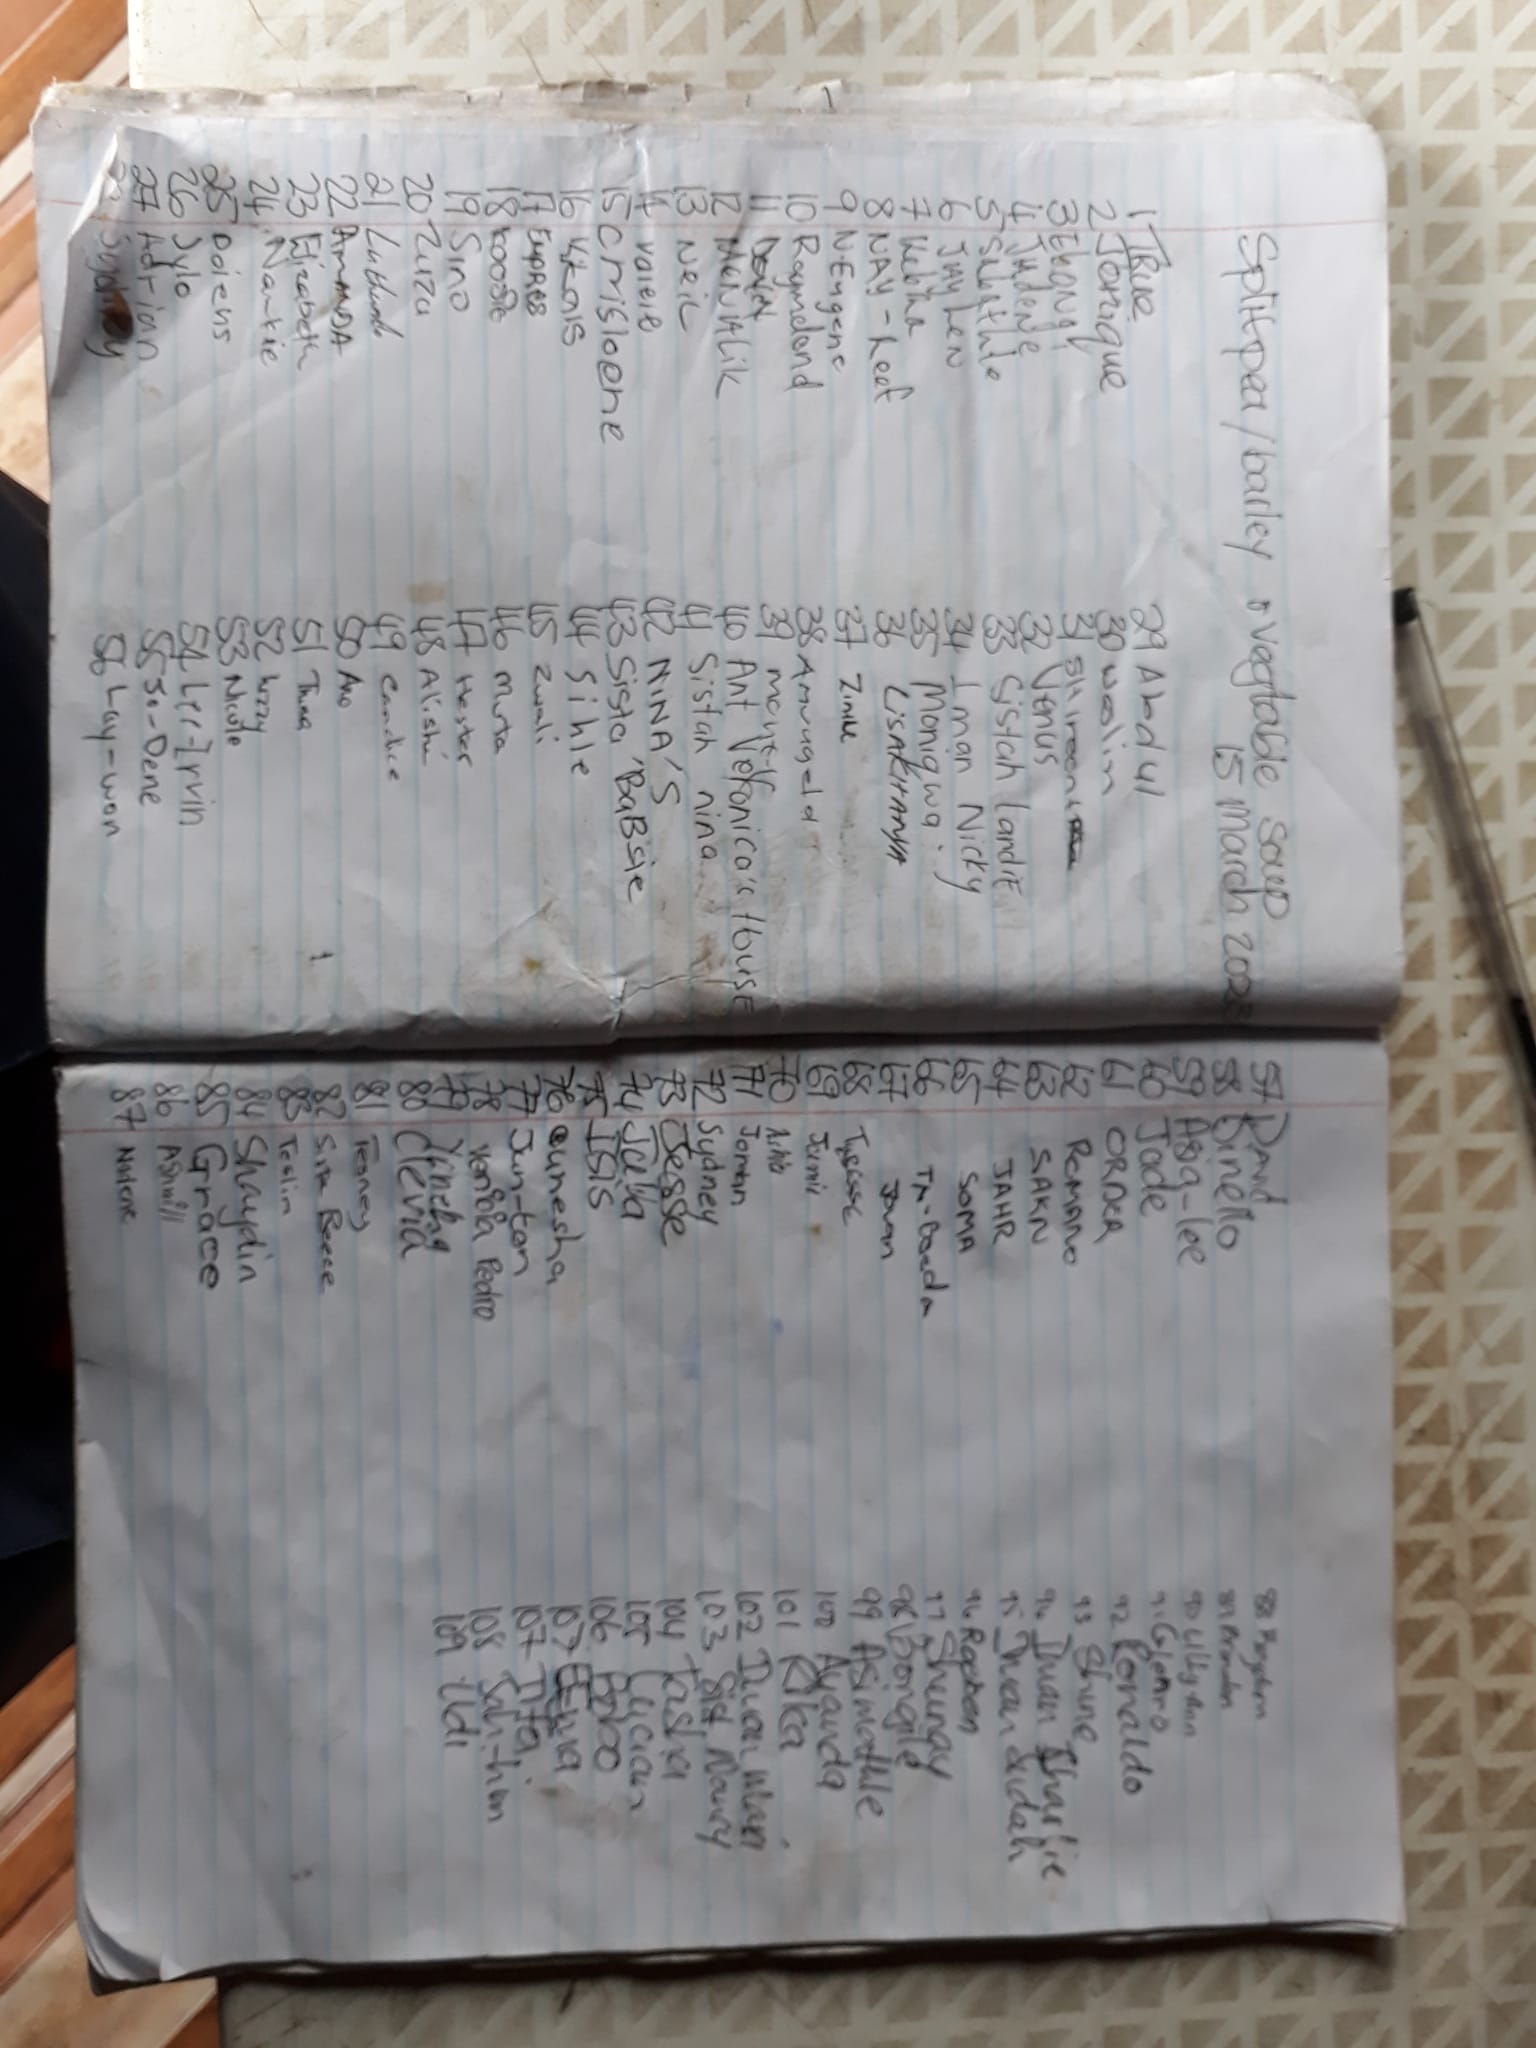 Splitpea/barley n vegtable soup
15 March 2022
1 True
2 Jorique
3 Ebony
4 Judene
5 Sibuthile
6 JAYDEN
7 Keisha
8 NAY-Leef
9 NEngene
10 Raymeland
11 David
12 MENVALIK
13 NEIL
14 Valere
15 Crrisloene
16
17 EMPRES
18 boosie
19 Sino
20 Zurzu
21
22 AMANDA
23 Elizabeth
24 Naankie
25 Daiens
26 Jylo
27 Adrian
28 Sydney
29 Abdul
30 Waslim
31 Shireen
32 Venus
33 Sistah Landie
34 Iman Nicky
35 Moniqwa.
36 LISAKHANYA
37 Zintle
38 Amugeld
39
40 Ant Veronica's House
41 Sistah nina
42 NINA'S
43 Sista 'BaBsie
44 Sihle
45 Zuvali
46 Muta
47 Hester
48 Alisha
49 Candice
50 Ano
51 Thea
52 Lizzy
53 Nicole
54 Lee-Irvin
55 Jo-Dene
56 Lay-won
57 David
58 Dinello
59 Asia-lee
60 Jade
61 ORDEA
62 ROMANO
63 SAKN
64 JAHR
65 SOMA
66 TA-Baada
67 Jovan
68 Tyresse
69 Jamie
70 Aisha
71 Jordan
72 Sydney
73 Jesse
74 Julia
75 ISIS
76 Qunesha
77 Jun-ton
78 Veronica Pedro
79
80 Clevia
81 Tesney
82 Sista Reece
83 Teslin
84 Shaydin
85 Grace
86 Ashmill
87 Nadene
88
89 Brandon
90 Lilly-Ann
91 Glenro
92 Renaldo
93 Shine
94 Iman Charlie
95 Iman Judah
96 Rephen
97 Shunay
98 Bongile
99 Asimahle
100 Ayanda
101 Rika
102 Iman Man
103 Sist Naury
104 Tasha
105 Lucian
106 Boboo
107
107 Tita
108 Sah-him
109 Ildi